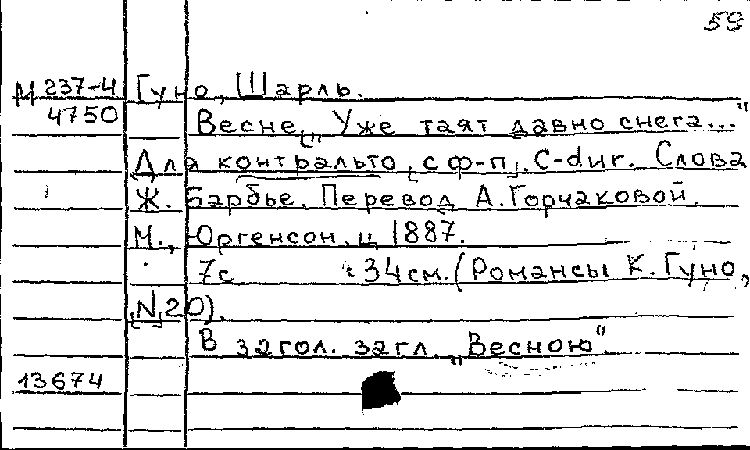 59
М 237-4 Гуно, Шарль.
4750 Весне. „Уже таят давно снега..."
Для контральто с ф-п. C-dur. Слова
Ж. Барбье. Перевод А. Горчаковой.
М., Юргенсон, ц 1887.
7с 34см. (Романсы К. Гуно,
N 20).
В загол. загл. „Весною"
13674